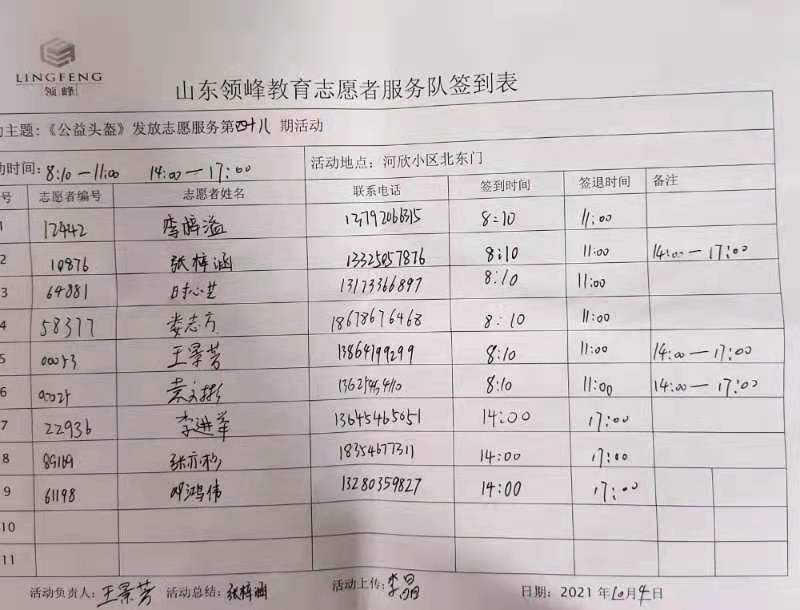 LINGFENG
领峰
山东领峰教育志愿者服务队签到表
主题:《公益头盔》发放志愿服务第四十八期活动
时间: 8:10—11:00 14:00—17:00 活动地点: 河欣小区北东门
号 志愿者编号 志愿者姓名 联系电话 签到时间 签退时间 备注
1 12442 李梓溢 8:10 11:00
2 10876 张梓涵 13325057876 8:10 11:00 14:00—17:00
3 64881 时心芝 13173366897 8:10 11:00
4 58377 娄志方 18678676468 8:10 11:00
5 00053 王景芳 13864199299 8:10 11:00 14:00—17:00
6 00025 袁文彬 8:10 11:00 14:00—17:00
7 22936 李进军 13645465051 14:00 17:00
8 89169 张亦杉 18354677311 14:00 17:00
9 61198 邓鸿伟 13280359827 14:00 17:00
10
11
活动负责人: 王景芳 活动总结: 张梓涵 活动上传: 李晶 日期: 2021年10月4日